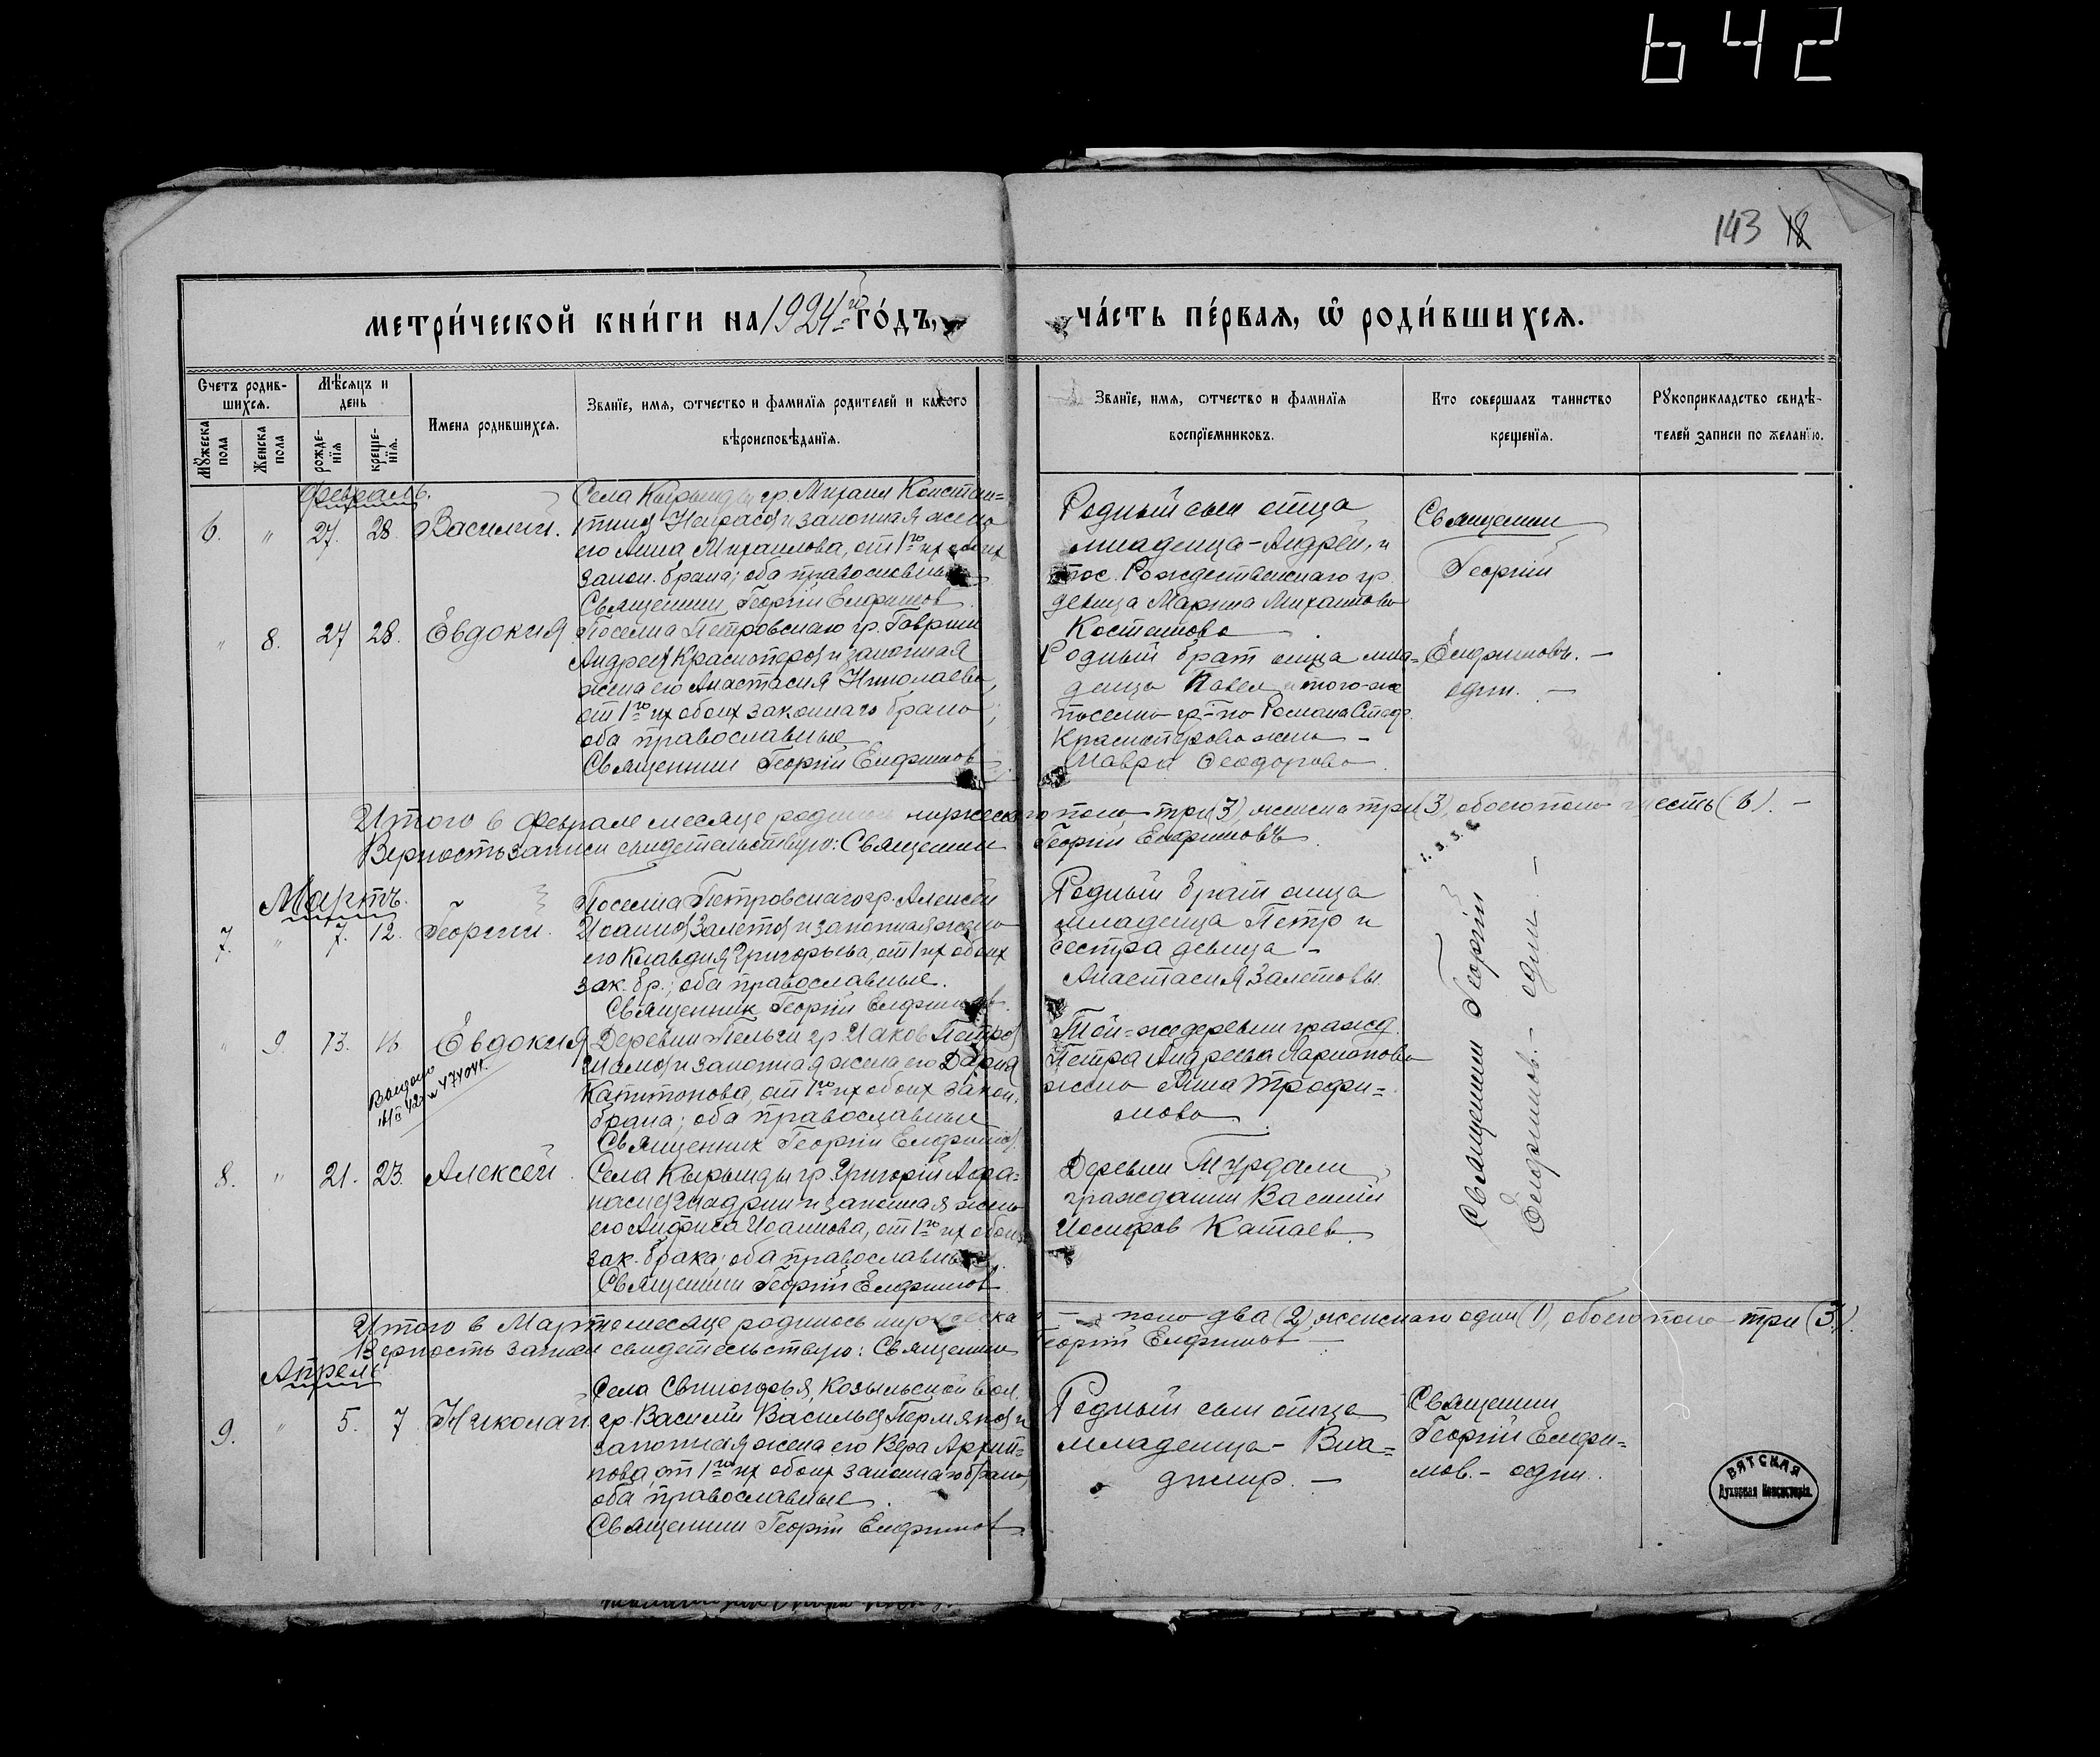 642
143 18
метри́ческой кни́ги на 1924 го го́дъ,
ча́сть пе́рвая, ѡ роди́вшихсѧ.
Счетъ родив-
шихсѧ.
Мѣсѧцъ и
день
Имена родившихсѧ.
Званїе, имѧ, ѿтчество и фамилїѧ родителей и какого
вѣроисповѣданїѧ.
Званїе, имѧ, ѿтчество и фамилїѧ
воспрїемниковъ.
Кто совершалъ таинство
крещенїѧ.
Рꙋкоприкладство свидѣ-
телей записи по желанїю.
Мꙋжеска
пола
Женска
пола
рожде-
нїѧ
креще-
нїѧ.
Февраль.
6. " 27. 28. Василий.
Села Кырынды гр. Михаил Констан=
его Анна Михаилова, от 1го их обоих
закон. брака; оба православные
Священник Георгий Елфимов
Родный сын отца
младенца - Андрей, и
пос. Рождественскаго гр.
девица Марина Михаилова
Костылева
Священник
Георгий
" 8. 27 28. Евдокия
Поселка Петровскаго гр. Гавриил
Андреев Красноперов и законная
жена его Анастасия Николаева,
от 1го их обоих законнаго брака;
оба православные
Священник Георгий Елфимов
Родный брат отца мла=
денца Павел и того-же
поселка гр-на Романа
Красноперова жена -
Мавра Феодорова
Елфимовъ. -
един. -
Итого в феврале месяце родилось мужескаго пола три (3), женска три (3), обоего пола шесть (6). -
Верность записи свидетельствую: Священник Георгий Елфимовъ
Мартъ.
7. " 7. 12. Георгий.
Поселка Петровскаго гр. Алексей
Иоаннов Залетов и законная жена
его Клавдия Григорьева, от 1 их обоих
зак. бр.; оба православные.
Священник Георгий Елфимов
Родный брат отца
младенца Петр и
сестра девица -
Анастасия Залетовы
Священник Георгий
Елфимов. - един. -
" 9. 13. 16. Евдокия
Выдано
Деревни Пельги гр. Иаков Петров
и законная жена его Дария
Капитонова, от 1го их обоих закон.
брака; оба православные
Священник Георгий Елфимов
Той-же деревни гражд.
Петра Андреева Ларионова
жена Анна Трофи=
мова
8. " 21. 23. Алексей
Села Кырынды гр. Григорий Афа=
насиев и законная жена
его Анфиса Иоаннова, от 1го их обоих
зак. брака; оба православные.
Священник Георгий Елфимов
Деревни Турдали
гражданин Василий
Иосифов Катаев
Итого в Марте месяце родилось мужеска - пола два (2), женскаго один (1), обоего пола три (3).
Верность записи свидетельствую: Священник Георгий Елфимов -
Апрель
9. " 5. 7 Николай
Села Святогорья, Козыльской вол.
гр. Василий Васильев Пермяков и
законная жена его Вера Архип=
пова, от 1го их обоих законнаго брака,
оба православные.
Священник Георгий Елфимов
Родный сын отца
младенца - Вла=
димир. -
Священник
Георгий Елфи=
мов. - един.
ВЯТСКАЯ
Духовная Консисторія.